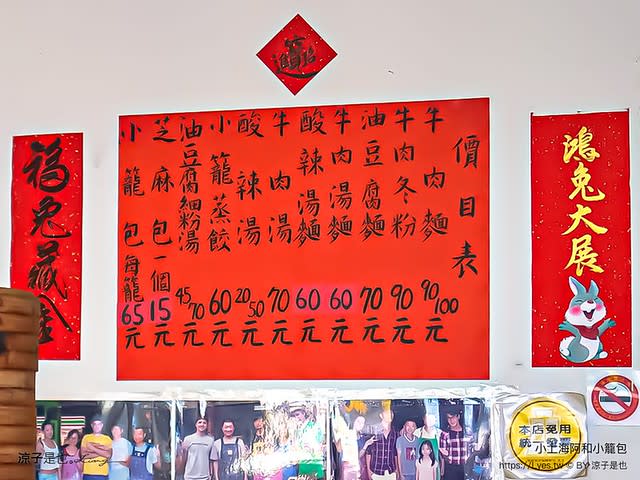 招財進寶
福兔藏金
價目表
牛肉麵 90 100 元
牛肉冬粉 90 元
油豆腐麵 70 元
牛肉湯麵 60 元
酸辣湯麵 60 元
牛肉湯 70 元
酸辣湯 20 50 元
小籠蒸餃 60 元
油豆腐細粉湯 45 70 元
芝麻包一個 15 元
小籠包每籠 65 元
鴻兔大展
本店免用
統一發票
涼子是也
小上海阿和小籠包
https://1yes.tw © BY 涼子是也